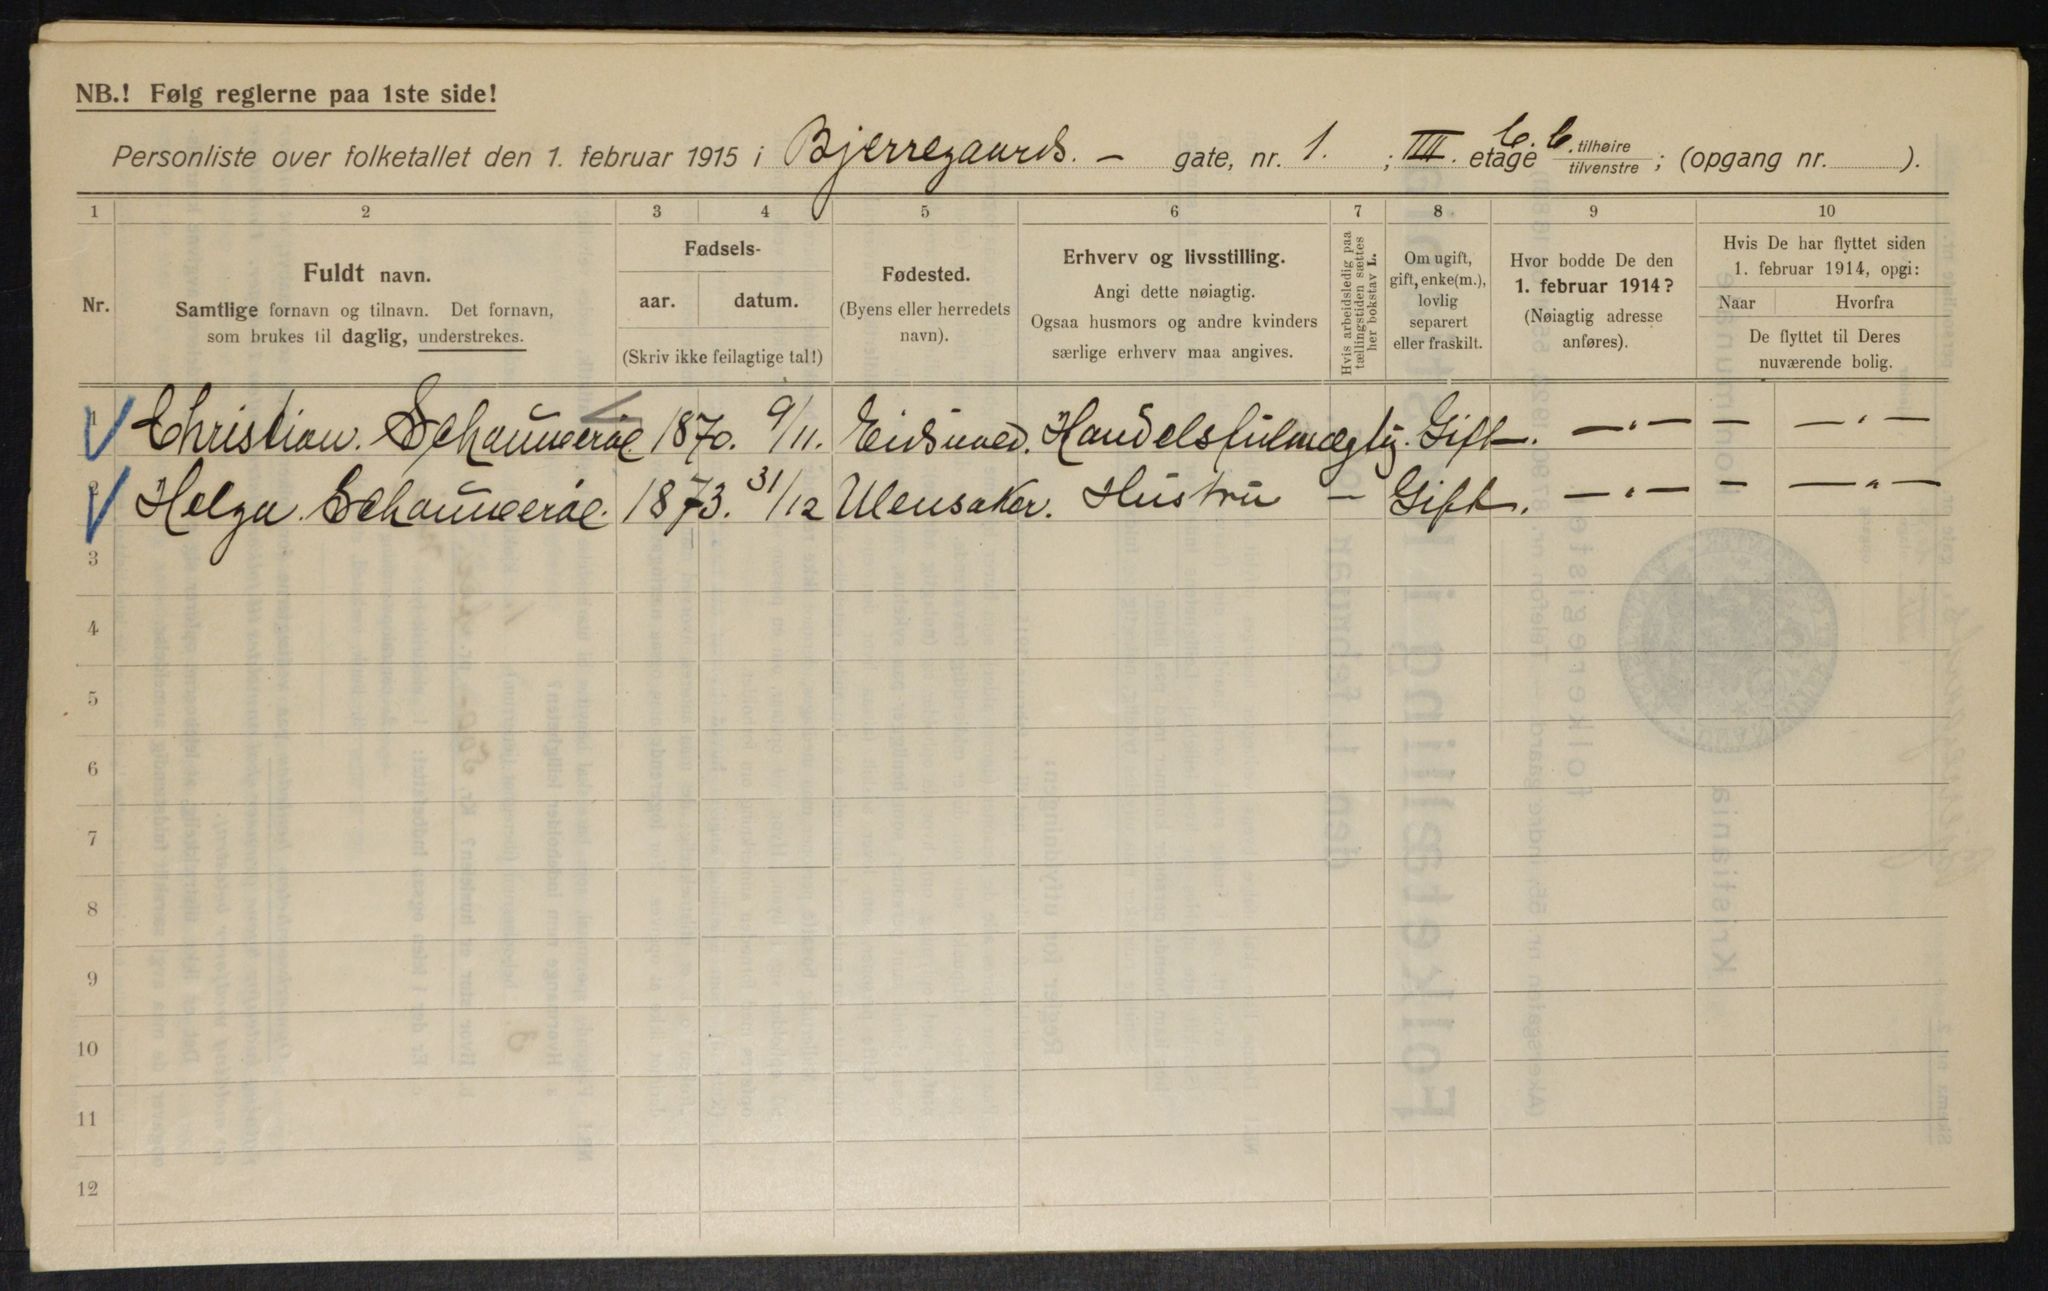 NB.! Følg reglerne paa 1ste side!
Personliste over folketallet den 1. februar 1915 i Bjerregaards. — gate, nr. 1. ; IIII. etage tilhøire tilvenstre ; (opgang nr. ).
1 2 3 4 5 6 7 8 9 10
Nr.
Fuldt navn.
Samtlige fornavn og tilnavn. Det fornavn,
som brukes til daglig, understrekes.
Fødsels-
aar. datum.
(Skriv ikke feilagtige tal!)
Fødested.
(Byens eller herredets
navn).
Erhverv og livsstilling.
Angi dette nøiagtig.
Ogsaa husmors og andre kvinders
særlige erhverv maa angives.
Hvis arbeidsledig paa
tællingstiden sættes
her bokstav L.
Om ugift,
gift, enke(m.),
lovlig
separert
eller fraskilt.
Hvor bodde De den
1. februar 1914?
(Nøiagtig adresse
anføres).
Hvis De har flyttet siden
1. februar 1914, opgi:
Naar Hvorfra
De flyttet til Deres
nuværende bolig.
1 Christian. 1870. 9/11. Eidsvold. Handelsfulmægtig. Gift. — „ — — — „ —
2 Helga 1873. 31/12 Ullensaker. Hustru — Gift. — „ — — — „ —
3
4
5
6
7
8
9
10
11
12